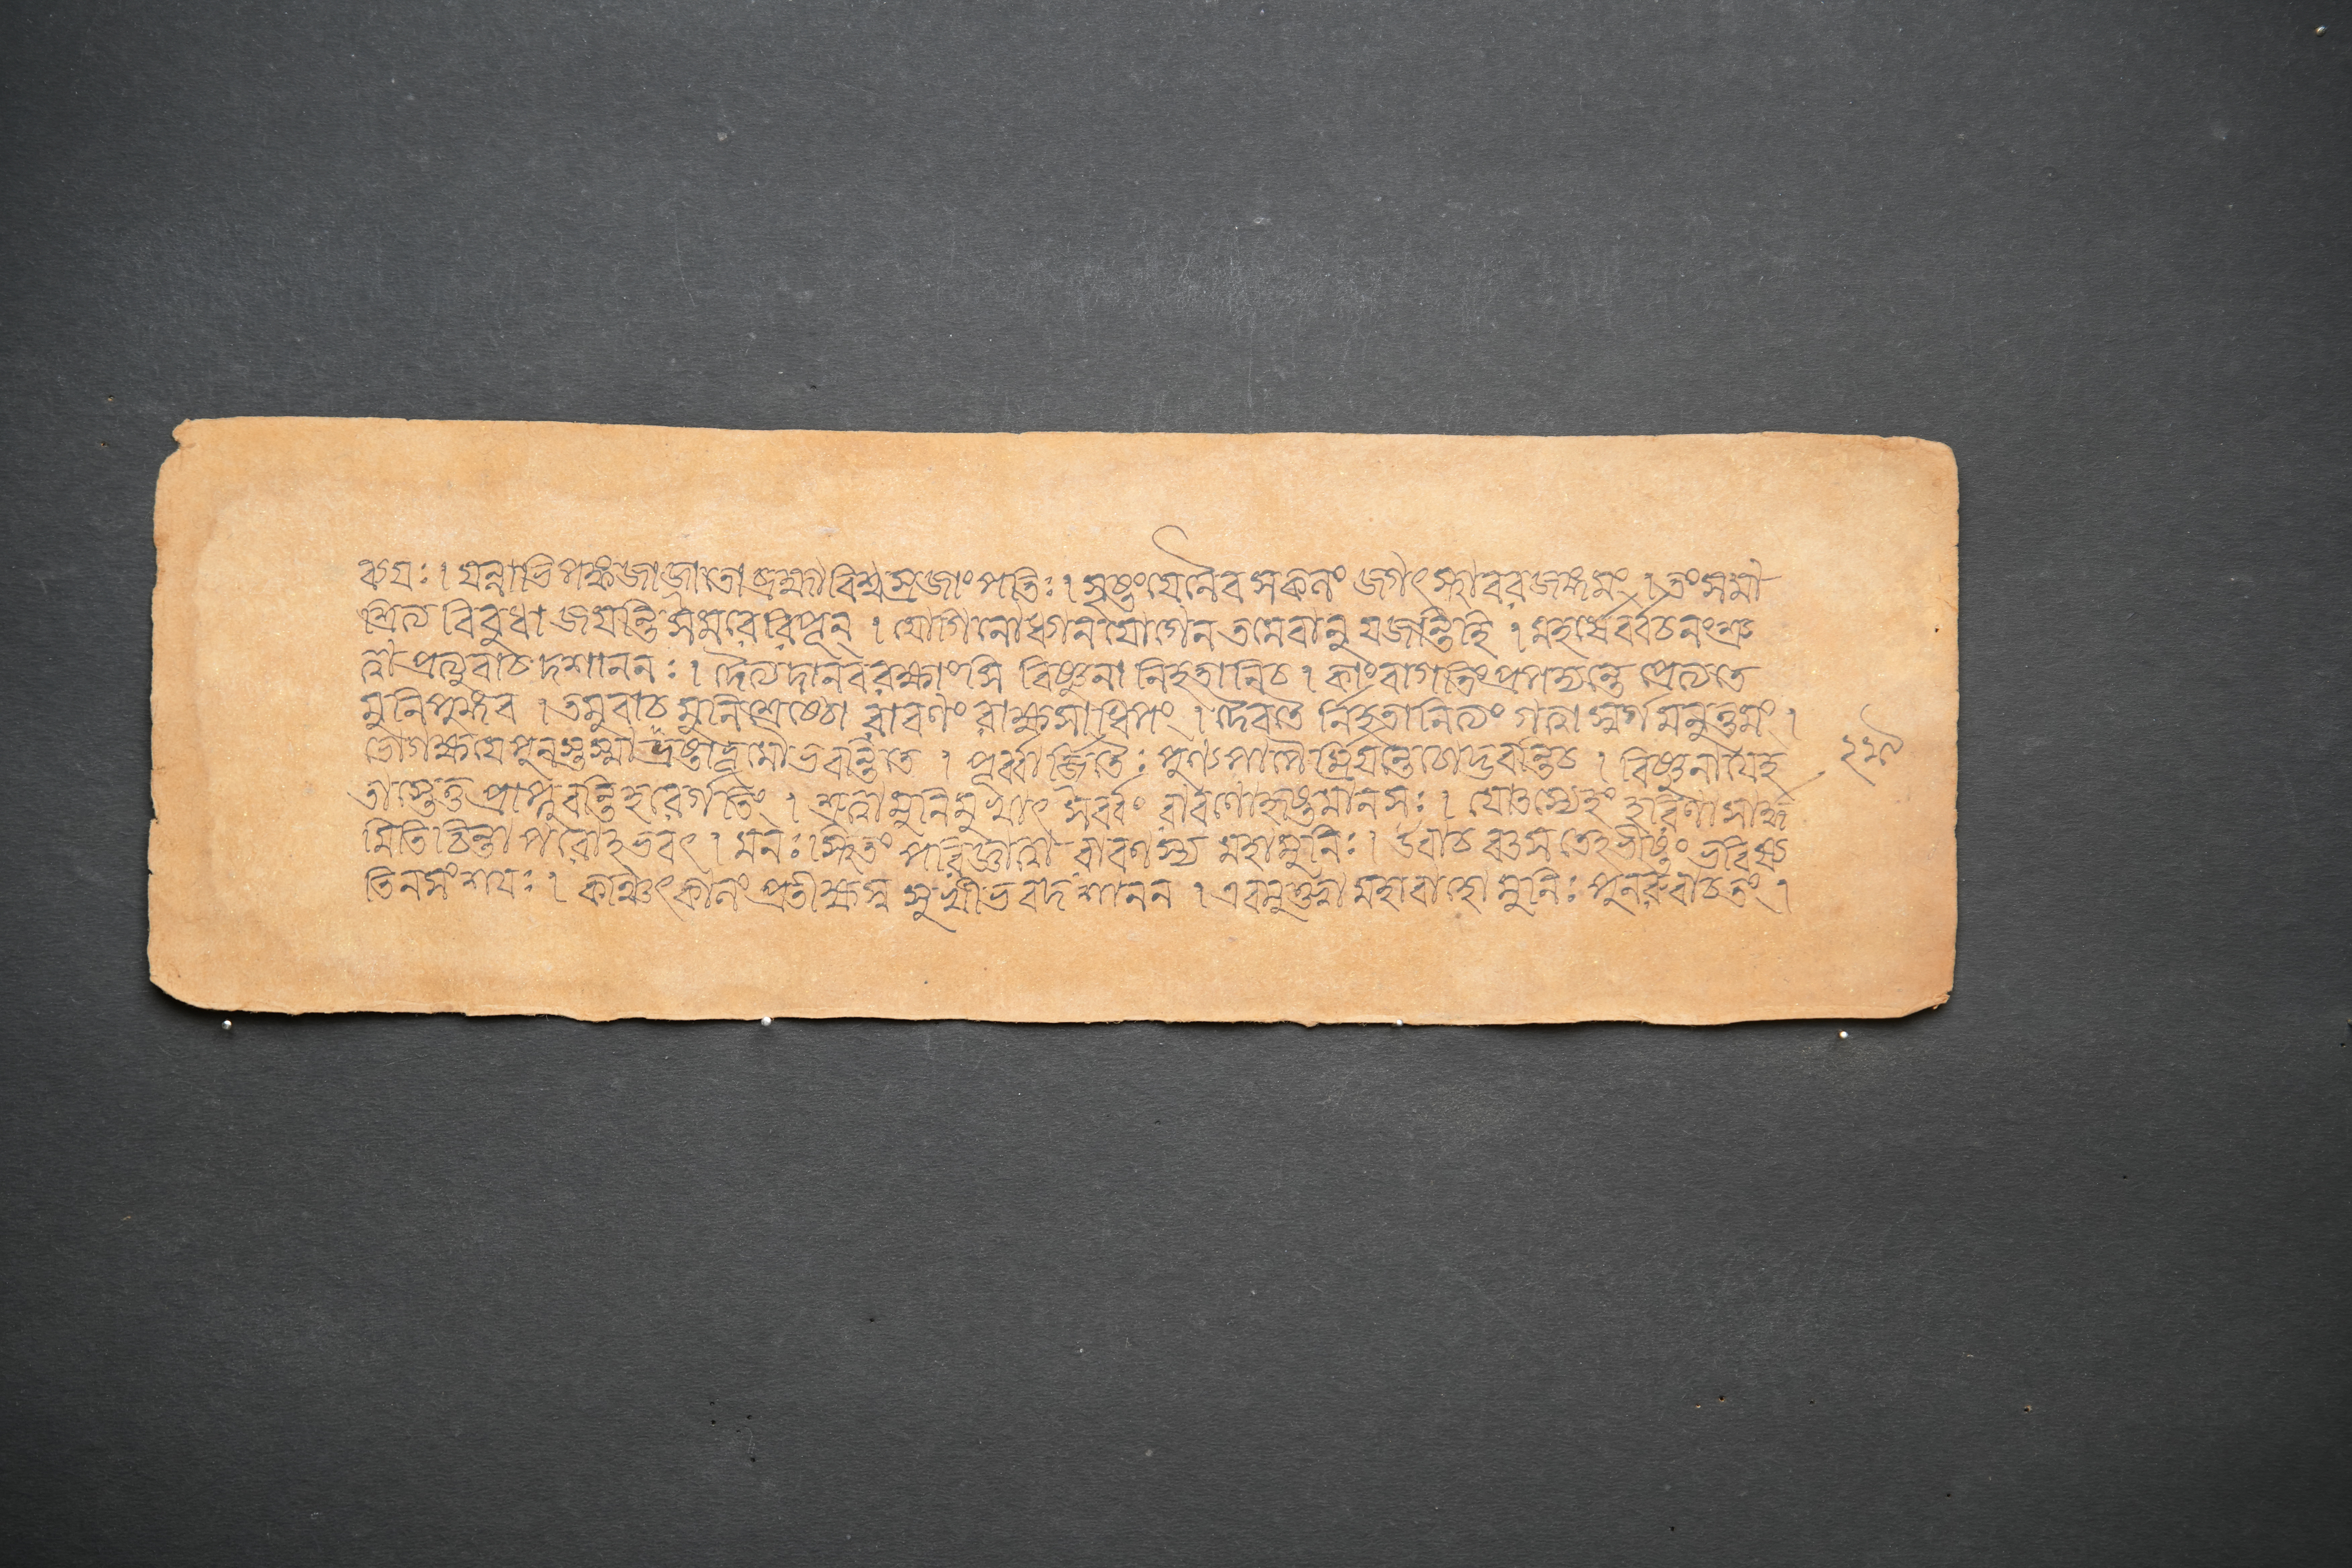 ব্যয়ঃ। যন্নাভিপঙ্কজাজ্জাতো ব্রহ্মা বিশ্বসৃজাংপতিঃ। সৃষ্টং যেনৈব সকলং জগৎ স্থাবরজঙ্গমং। তং সমা
শ্রিত্য বিবুধা জয়ন্তি সমরে রিপূন্। যোগিনো ধ্যানযোগেন তমেবানুযজন্তি হি। মহর্ষের্ব্বচনং শ্রু
ত্বা প্রত্যুবাচ দশাননঃ। দৈত্যদানবরক্ষাংসি বিষ্ণুনা নিহতানি চ। কাং বা গতিং প্রপদ্যন্তে প্রেত্য তে
মুনিপুঙ্গব। তমুবাচ মুনিশ্রেষ্ঠো রাবণং রাক্ষসাধিপং। দৈবতৈ র্নিহতা নিত্যং গত্বা স্বর্গমনুত্তমং।
ভোগক্ষয়ে পুনস্তস্মাদ্ভ্রষ্টা ভূমৌ ভবন্তি তে। পূর্ব্বার্জ্জিতৈঃ পুণ্যপাপৈ র্ম্রিয়ন্তে চোদ্ভবন্তি চ। বিষ্ণুনা যে হ
তাস্তেতু প্রাপ্নুবন্তি হরের্গতিং। শ্রুত্বা মুনিমুখাৎ সর্ব্বং রাবণো হৃষ্টমানসঃ। যোৎস্যেহং হরিণা সার্দ্ধ
মিতি চিন্তাপরোহভবৎ। মনঃস্থিতং পরিজ্ঞাত্বা রাবণস্য মহামুনিঃ। উবাচ বৎস তেহভীষ্টং ভবিষ্য
তি ন সংশয়ঃ। কঞ্চিৎকালং প্রতীক্ষস্ব সুখী ভব দশানন। এবমুক্ত্বা মহাবাহো মুনিঃ পুনরুবাচ তং।